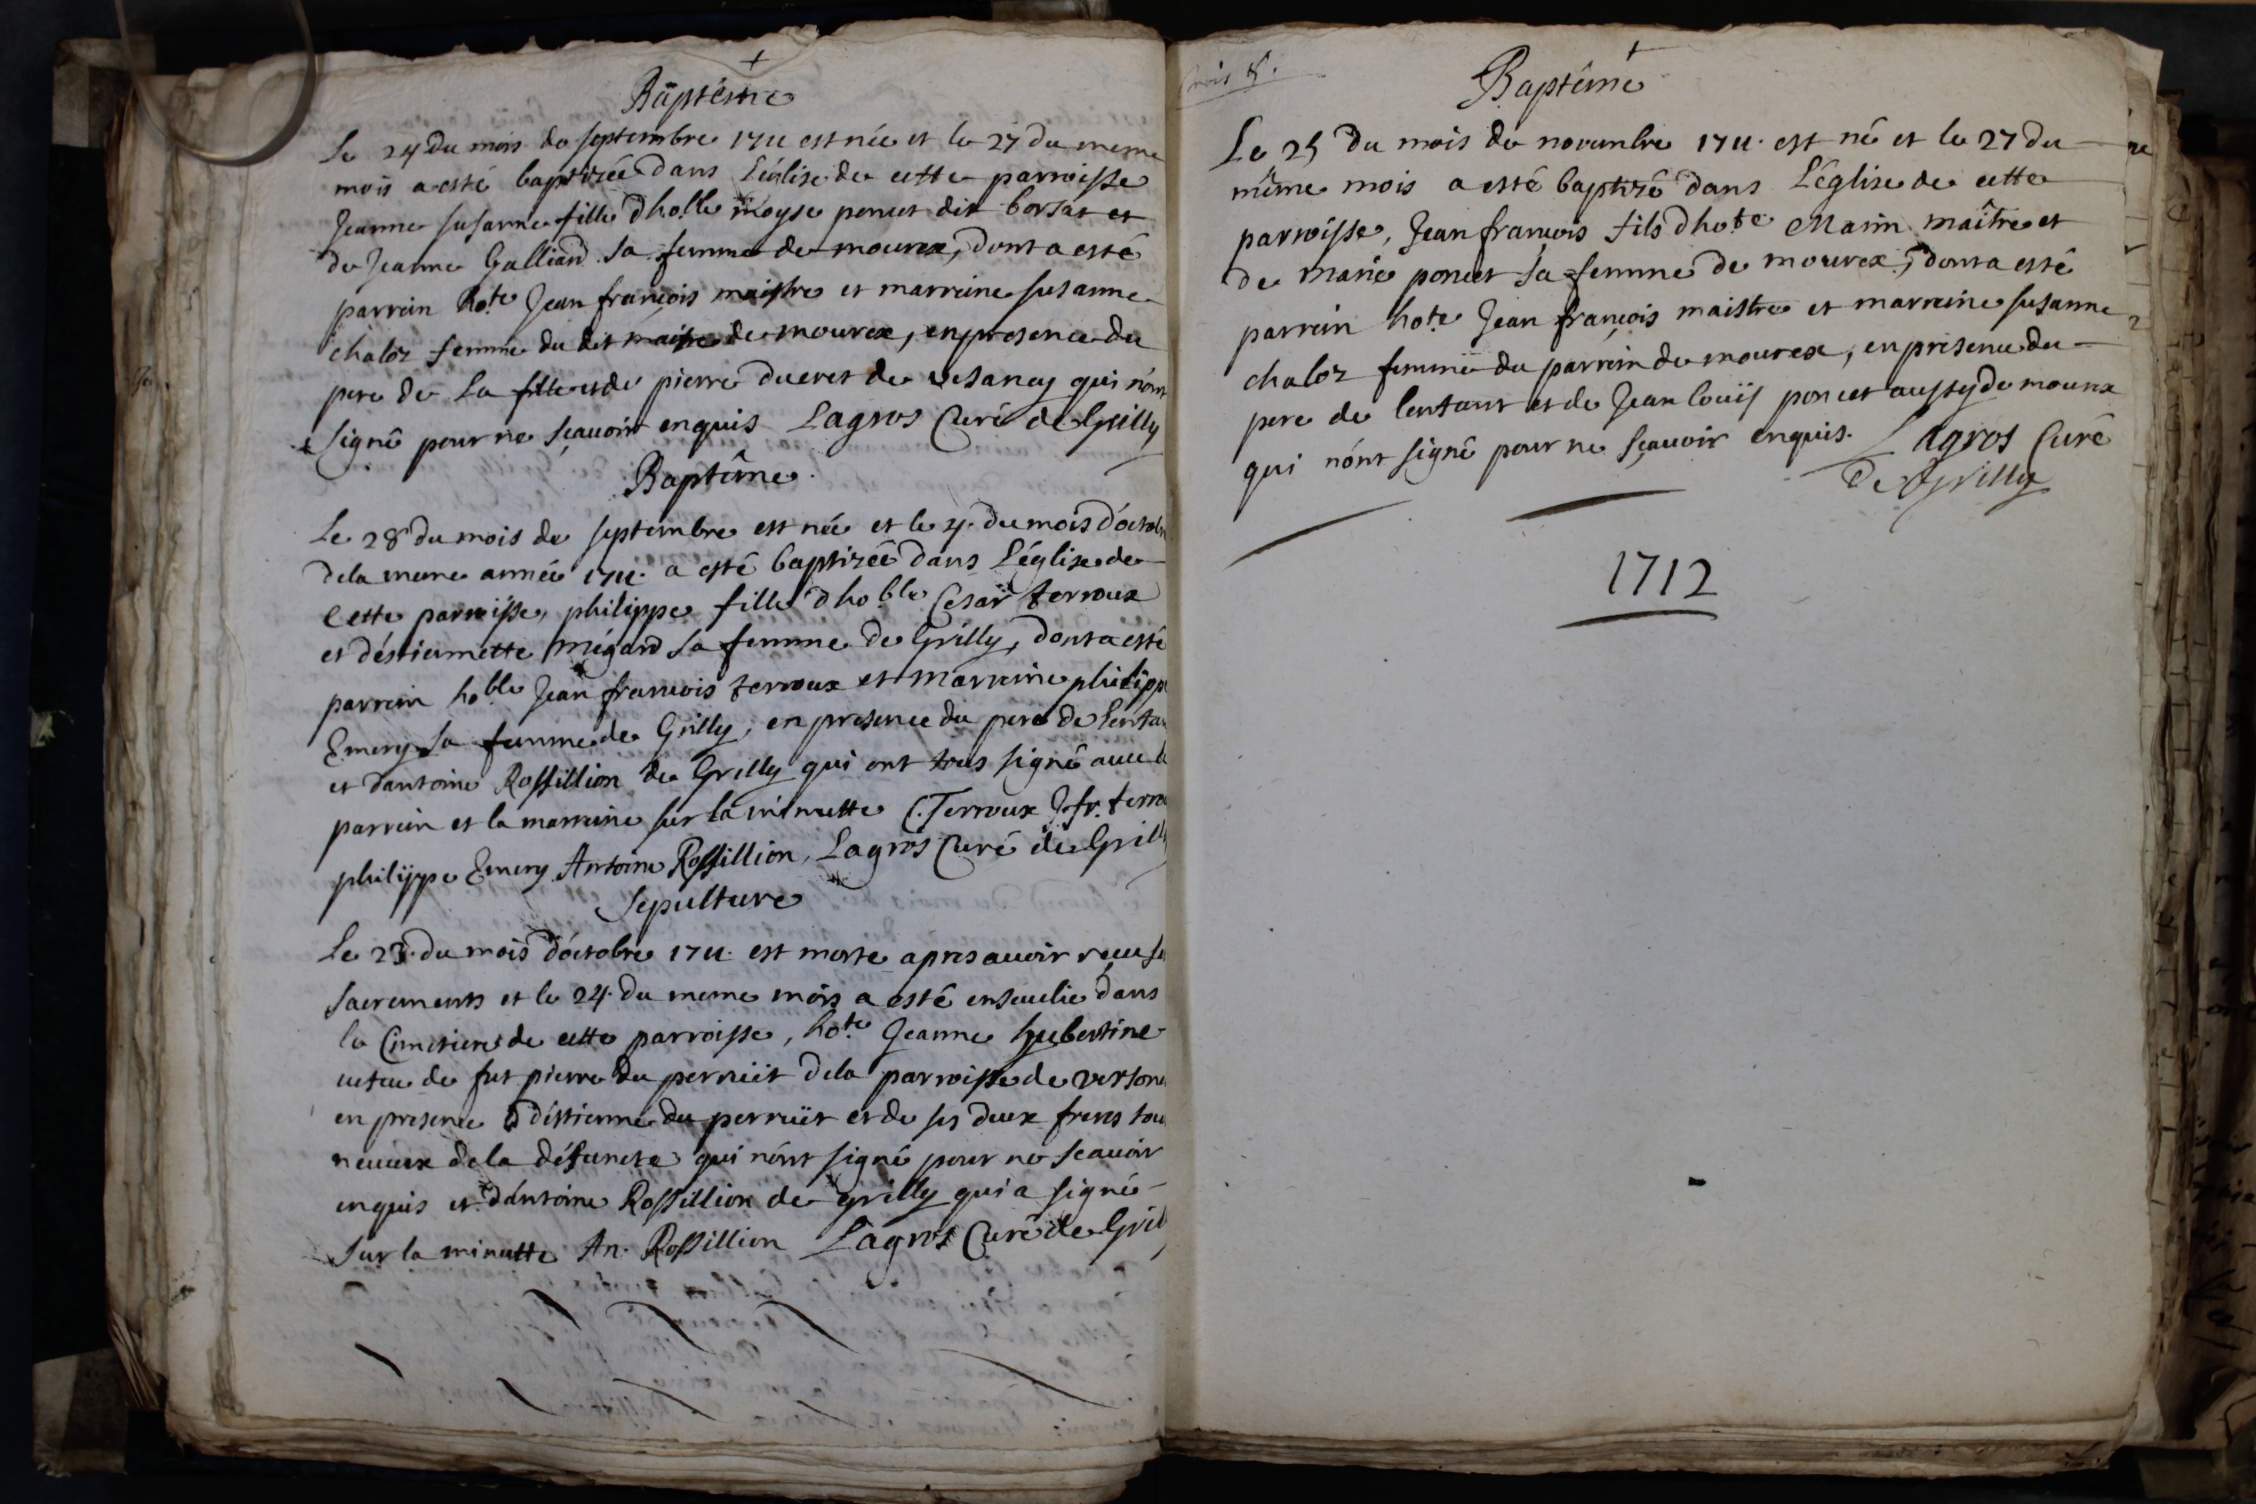 +
Baptême
Le 24 du mois de septembre 1711 est née et le 27 du meme
mois a esté baptizée dans L'église de cette parroisse
Jeanne susanne fille d'ho.lle moyse poncet dit borsat et
de Jeanne Galliard sa femme de mourex, dont a esté
parrein ho.te Jean françois maistre et marreine susanne
chaloz femme du dit maitre de mourex, en presence du
pere de La fille et de pierre ducret de vesancy qui n'ont
signé pour ne sçauoir enquis Lagros Curé de Grilly
Baptême.
Le 28 du mois de septembre est née et le 4. du mois d'octob
dela meme année 1711. a esté baptizée dans L'église de
Cette parroisse, philippe fille d'ho.ble Cesar terroux
et d'éstiennette mégard sa femme de Grilly, dont a esté
parrein ho.ble Jean francois terroux et marreine philippe
Emery sa femme de Grilly, en presence du pere de L'enfan
et d'antoine Rossillion de Grilly qui ont tous signé auec le
parrein et la marreine sur la minutte C. Terroux J. fr. terro
philippe Emery Antoine Rossillion, Lagros Curé de Grill
Sepulture
Le 23. du mois d'octobre 1711. est morte apres auoir receu se
sacrements et le 24. du meme mois a esté enseuelie dans
le Cimetiere de cette parroisse, ho.te Jeanne hubertine
uefue de fut pierre du perruit dela parroisse de versone
en presence d'éstienne du perruit et de ses deux freres tou
neueux dela défuncte qui n'ont signé pour ne scauoir
enquis et d'antoine Rossillion de grilly qui a signé
sur la minutte An. Rossillion Lagros Curé de Gril
+
Baptême
Le 25 du mois de nouembre 1711. est né et le 27 du
même mois a esté baptizé dans L'église de cette
parroisse, Jean françois fils d'ho.te Marin maître et
de marie poncet sa femme de mourex, dont a esté
parrein ho.te Jean françois maistre et marreine susanne
chaloz femme du parrein de mourex, en presence du
pere de l'enfant et de Jean louïs poncet aussy de mourex
qui n'ont signé pour ne sçauoir enquis. Lagros Curé
de Grilly
1712